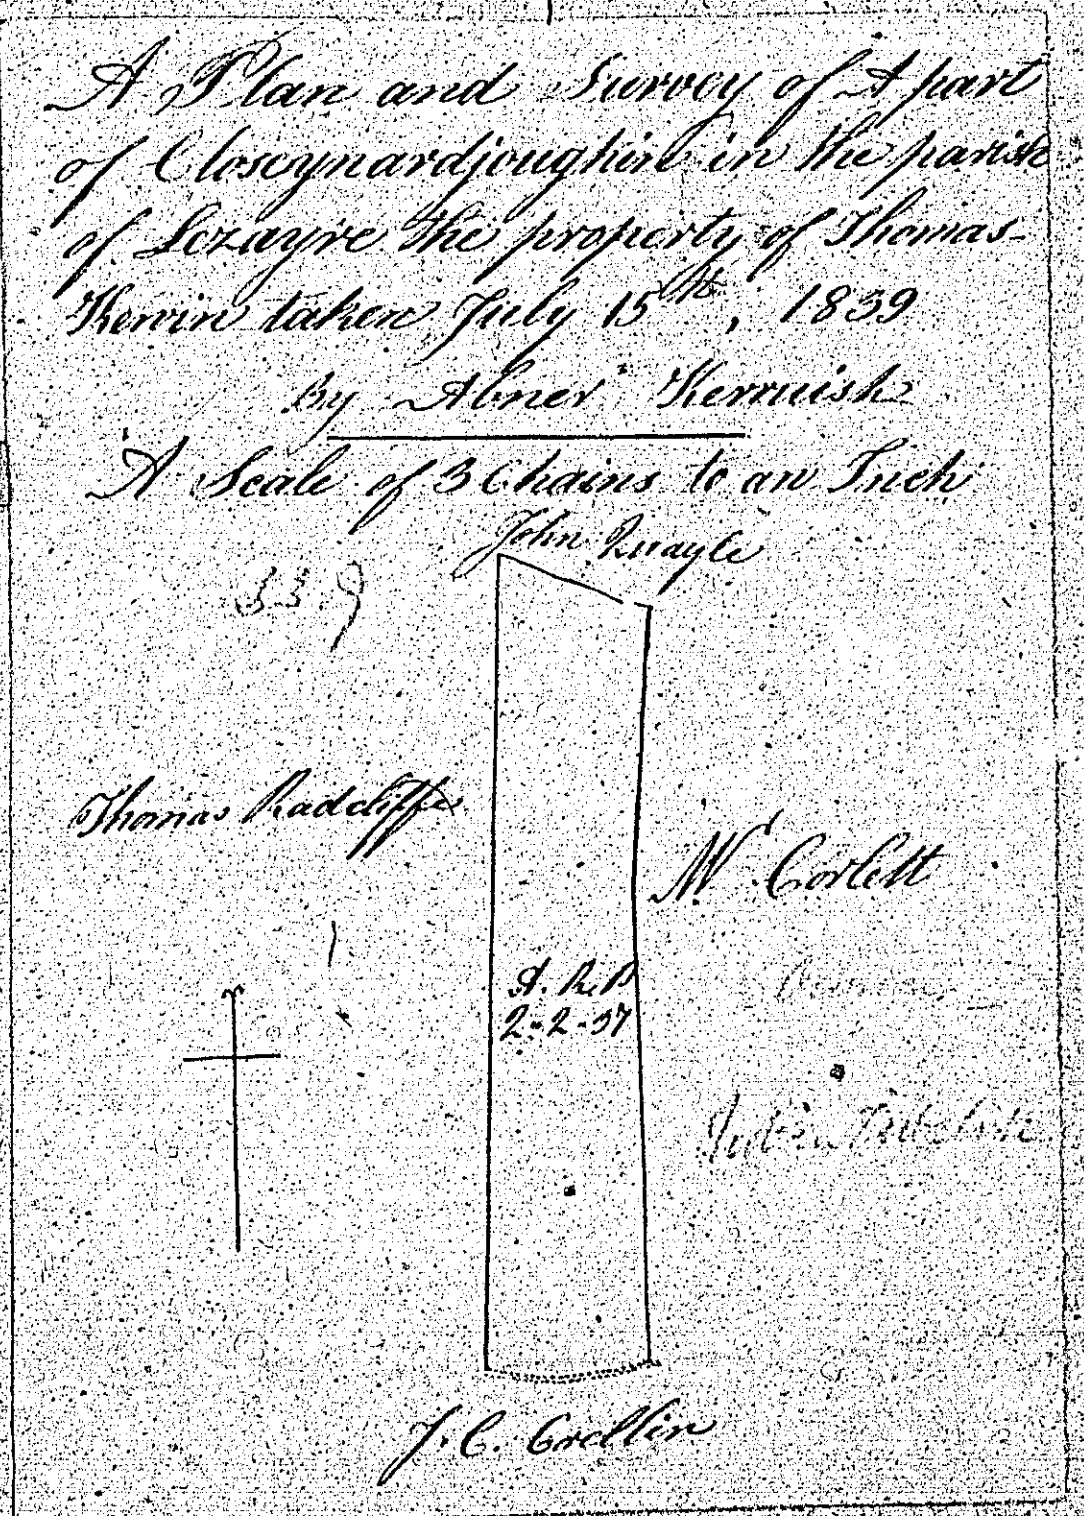 A Plan and Survey of A part
of Closeynardjoughin in the parish
of Lezayre the property of Thomas
Kewin taken July 15th, 1839
By Abner Kerruish
A Scale of 3 Chains to an Inch
John Quayle
339
Thomas Radcliffe
W Corlett
A. R. P
2-2-37
J. C. Crellin